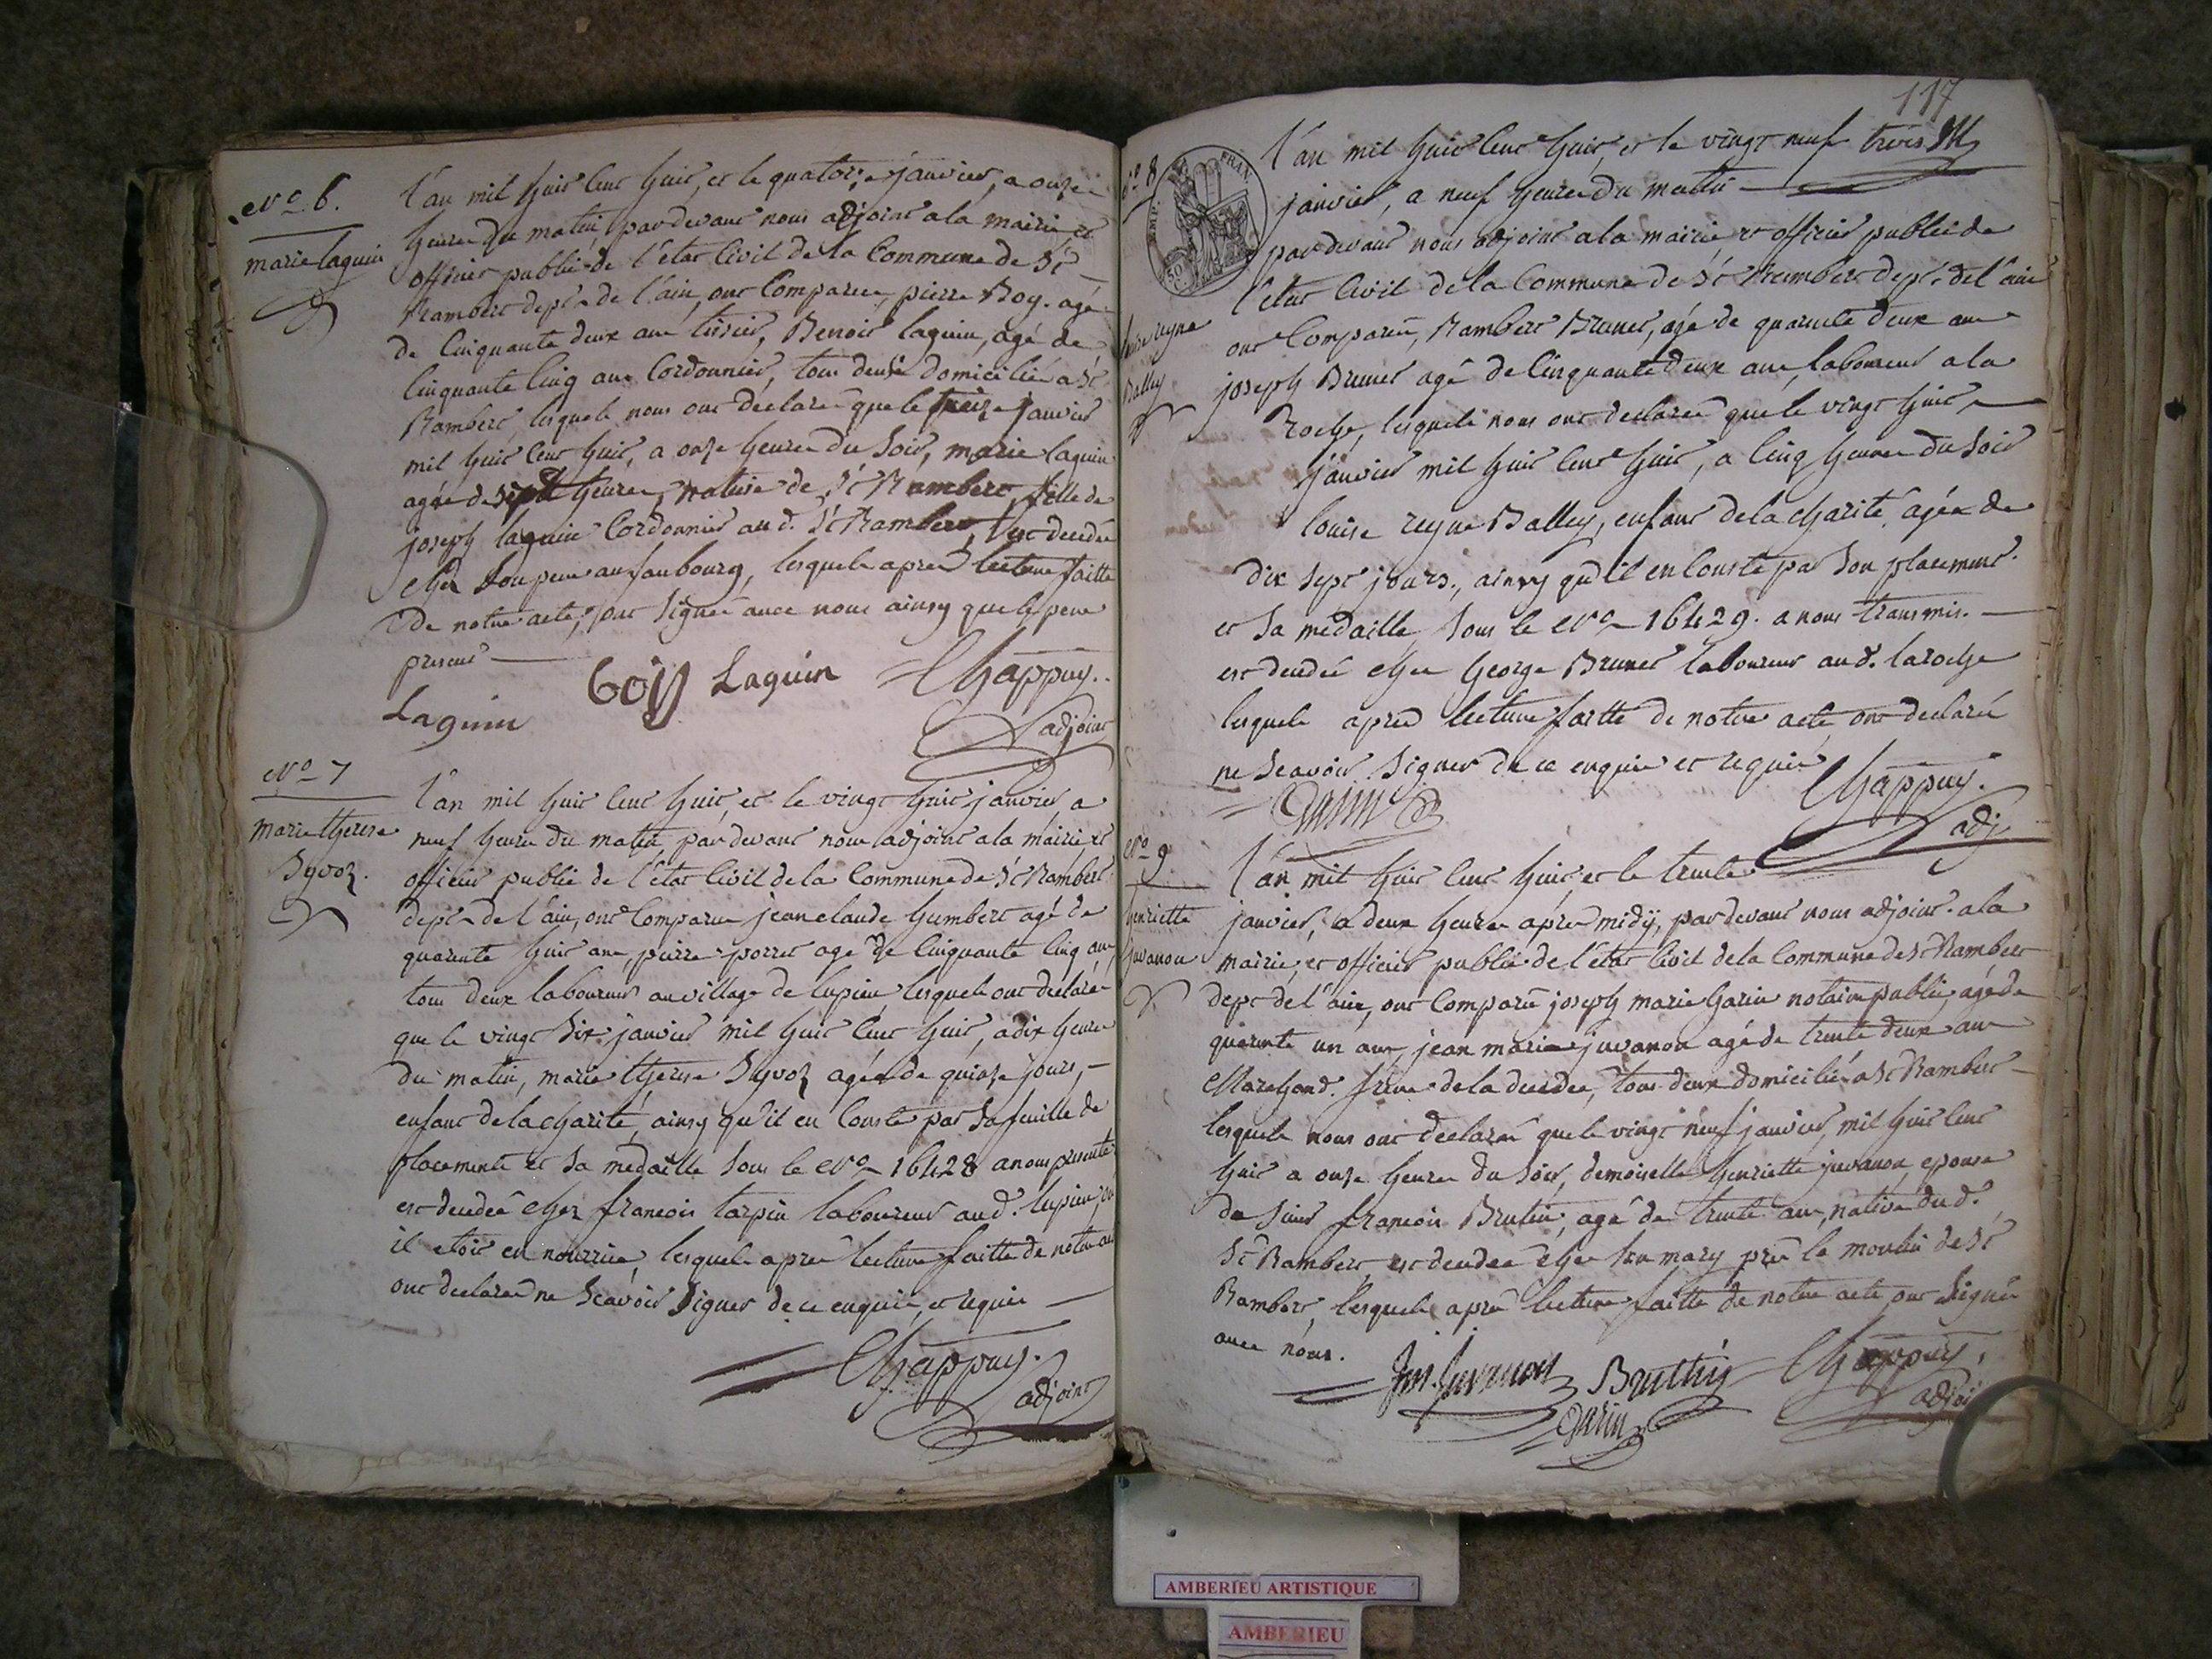 N.o 6.
marie laguin
l'an mil huit cent huit, et le quatorze janvier, a onze
heures du matin, pardevant nous adjoint a la mairie et
officier public de l'état Civil de la Commune de St
Rambert dept. de l'ain, ont Comparu, pierre Boy. agé
de Cinquante deux ans tissier, Benoit laguin, agé de
Cinquante Cinq ans Cordonnier, tous deux domiciliés a St
Rambert, lesquels nous ont declaré que le treize janvier
mil huit cent huit, a onze heures du soir, marie laguin
agée de sept heures, native de St Rambert, fille de
joseph laguin Cordonnier aud. St Rambert, est decedée
chez son pere au faubourg, lesquels apres lecture faitte
de notre acte, ont signé avec nous ainsy que le pere
present
Laguin
Boy
Laguin
Chappuy.
adjoint
N.o 7
marie therese
Syvoz.
l'an mil huit cent huit et le vingt huit janvier a
neuf heures du matin, pardevant nous adjoint a la mairie et
officier public de l'état Civil de la Commune de St Rambert
dept. de l'ain, ont Comparu jean claude humbert agé de
quarente huit ans, pierre porret agé de Cinquante Cinq ans,
tous deux laboureurs au village de lupieu lesquels ont declaré
que le vingt six janvier mil huit cent huit, a dix heures
du matin, marie therese Syvoz agée de quinze jours,
enfant de la charité, ainsy qu'il en Conste par sa feuille de
placement et sa medaille sous le N.o 16428 a nous presenté
est decedée chez francois tarpin laboureur aud. lupieu, ou
il etoit en nourrice, lesquels apres lecture faitte de notre acte
ont declaré ne scavoir signer de ce enquis et requis
Chappuy.
adjoint
117
N.o 8
louise reyne
Balley
l'an mil huit cent huit, et le vingt neuf
janvier, a neuf heures du matin
pardevant nous adjoint a la mairie et officier public de
l'état Civil de la Commune de St Rambert dept. de l'ain
ont Comparu, Rambert Brunet, agé de quarente deux ans
joseph Brunet agé de Cinquante deux ans, laboureurs a la
roche, lesquels nous ont declaré que le vingt huit
janvier mil huit cent huit, a Cinq heures du soir
louise reyne Balley, enfant de la charité, agée de
dix sept jours, ainsy qu'il en Conste par son placement
et sa medaille, sous le N.o 16429. a nous transmis.
est decedée chez George Brunet laboureur aud. laroche
lesquels apres lecture faitte de notre acte ont declaré
ne scavoir signer de ce enquis et requis
Garin
Chappuy.
adj
N.o 9
henriette
juvanon
l'an mil huit cent huit et le trente
janvier, a deux heures apres midy, pardevant nous adjoint a la
mairie, et officier public de l'état Civil de la Commune de St Rambert
dept de l'ain, ont Comparu joseph marie Garin notaire public, agé de
quarente un ans, jean marie juvanon agé de trente deux ans
Marchand. frere de la decedée, tous deux domiciliés a St Rambert
lesquels nous ont declaré que le vingt neuf janvier, mil huit cent
huit a onze heures du soir, demoiselle henriette juvanon, epouse
de sieur francois Brutin, agé de trente ans, native dud.
St Rambert, est decedée chez son mary près le moulin de St
Rambert, lesquels apres lecture faitte de notre acte ont signé
avec nous.
Jm. Juvanon
Bruthin
Garin
Chappuy.
adjoint
AMBERIEU ARTISTIQUE
AMBERIEU